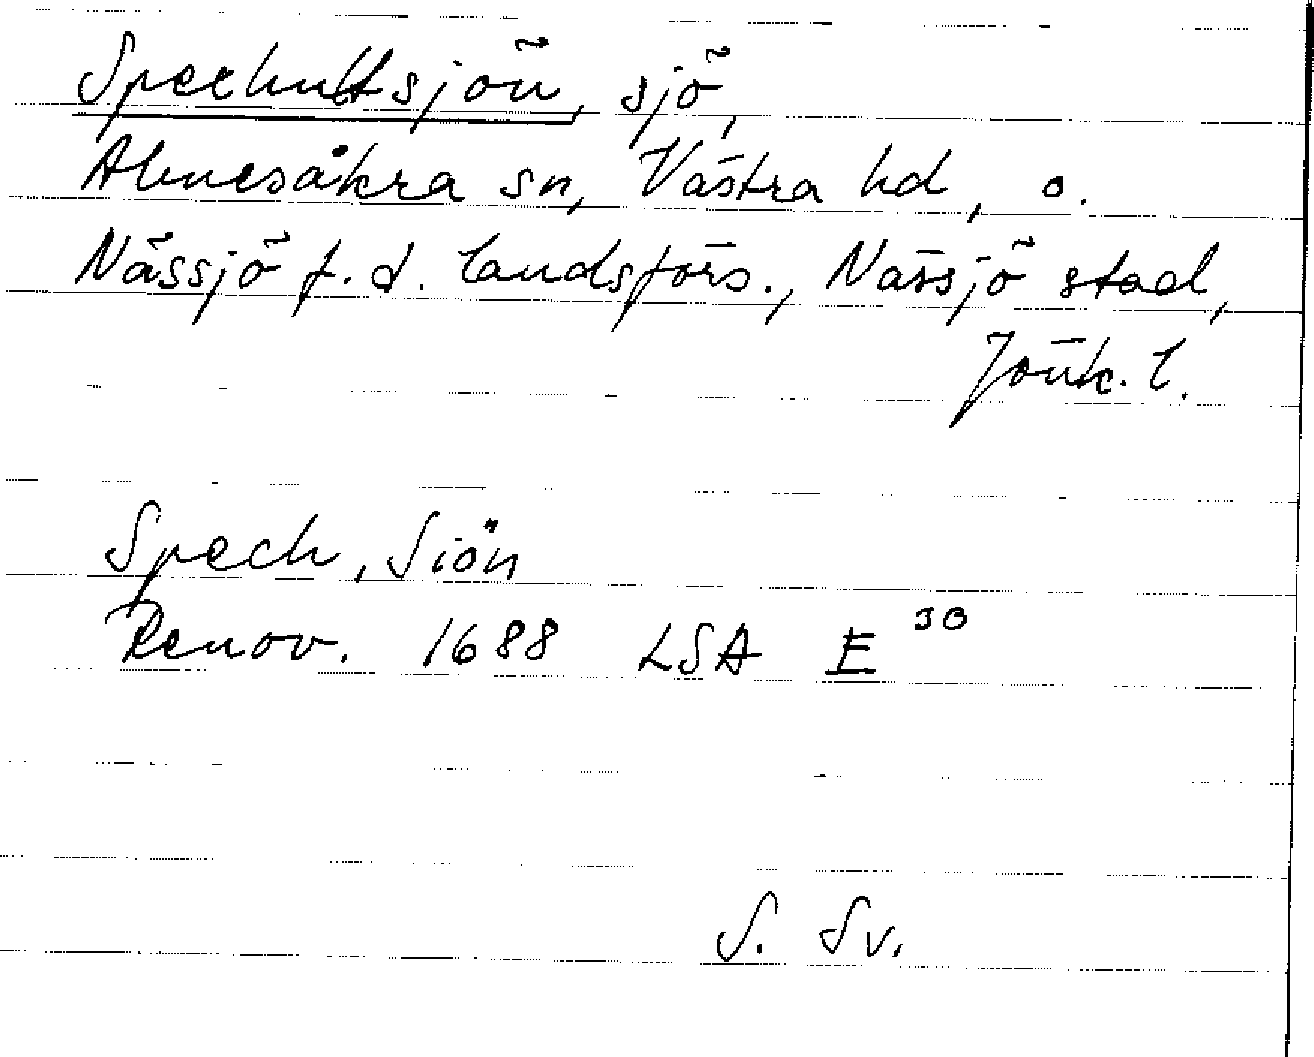 Spexhultsjön, sjö,
Almesåkra sn, Västra hd, o.
Nässjö f.d. landsförs., Nässjö stad,
Jönk. l.
Spech, Siön
Renov. 1688 LSA E 30
S. Sv.